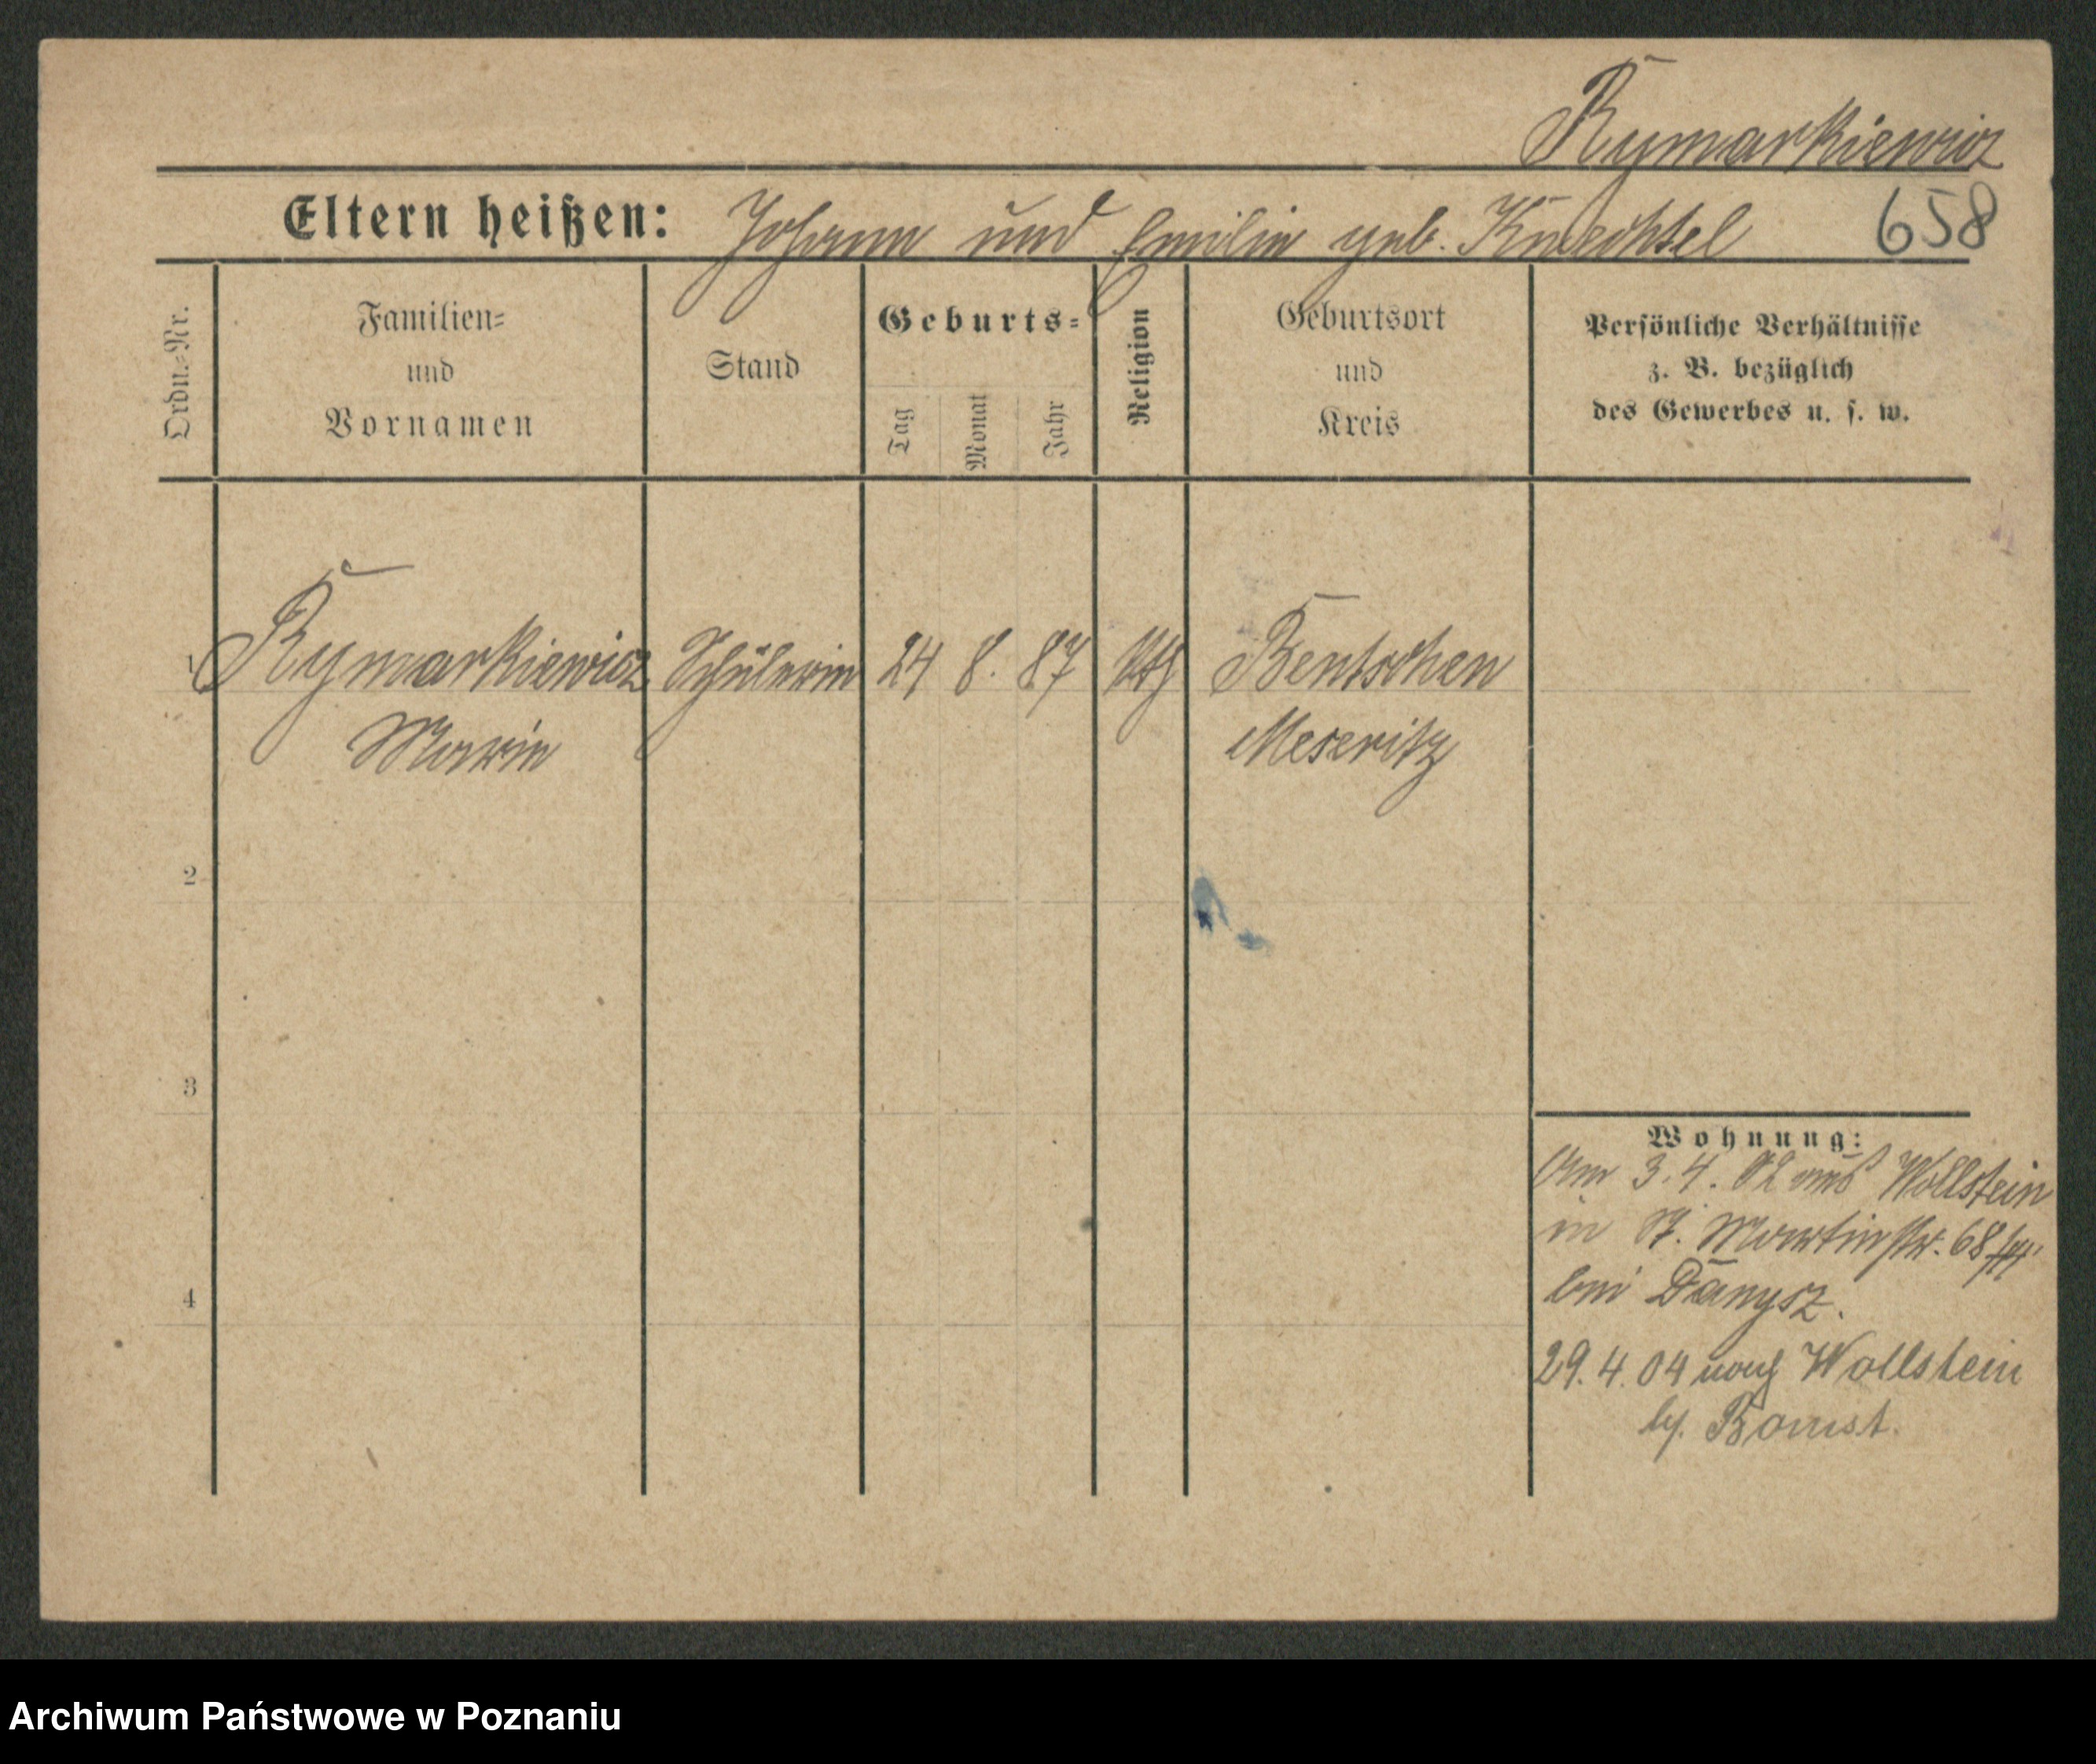 Rymarkiewicz
Eltern heißen: Johann und Emilie geb. Knechtel 658
Ordn.-Nr.
Familien-
und
Vornamen
Stand
Geburts-
Tag
Monat
Jahr
Religion
Geburtsort
und
Kreis
Persönliche Verhältnisse
z. B. bezüglich
des Gewerbes u. s. w.
1 Rymarkiewicz Schülerin 24 8. 87 kth Bentschen
Marie Meseritz
2
3
4
Wohnung:
Am 3. 4. 02 aus Wollstein
in St. Martinstr. 68
bei Danysz.
29. 4. 04 nach Wollstein
Bz. Bomst.
Archiwum Państwowe w Poznaniu